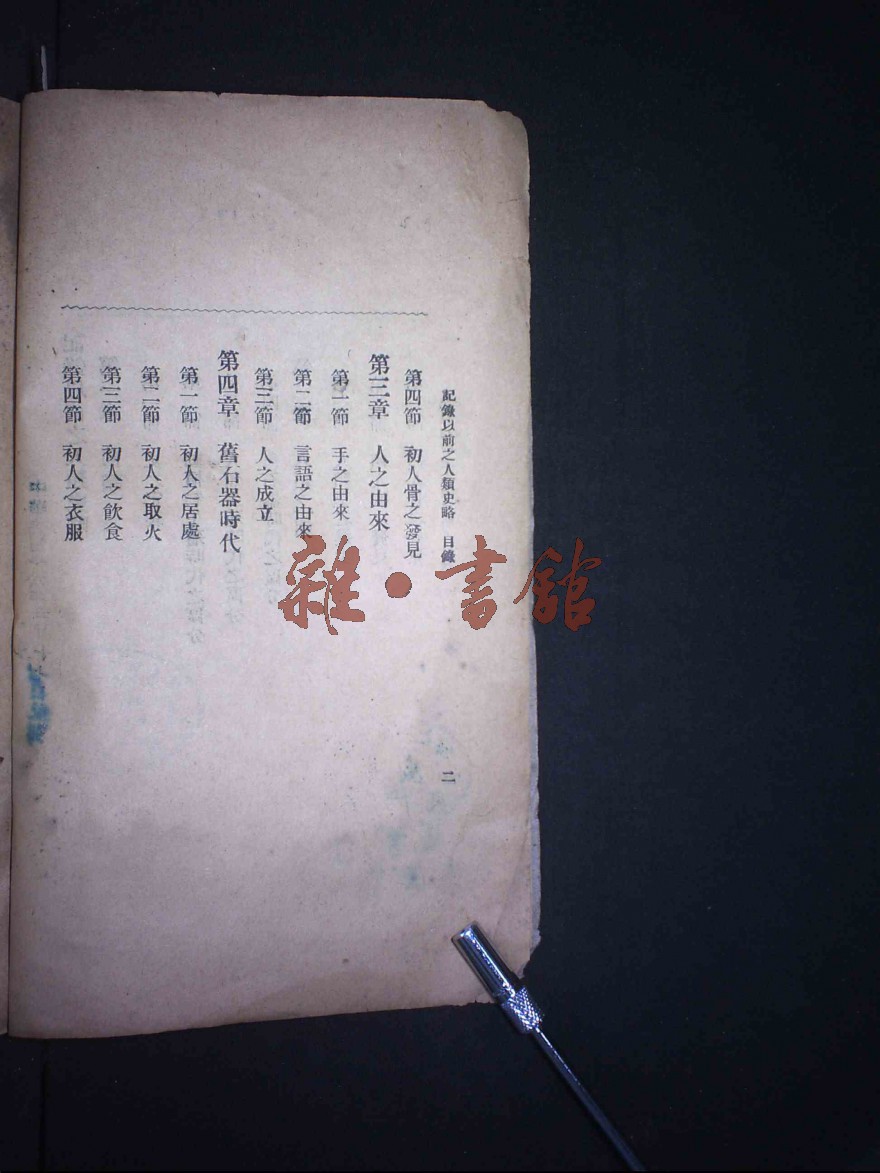 記錄以前之人類史略 目錄
二
第四節 初人骨之發見
第三章 人之由來
第一節 手之由來
第二節 言語之由來
第三節 人之成立
第四章 舊石器時代
第一節 初人之居處
第二節 初人之取火
第三節 初人之飲食
第四節 初人之衣服
雜·書館